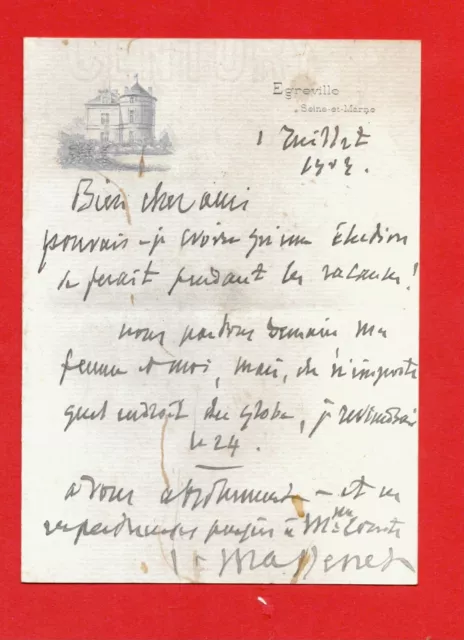 CENTURY
Egreville
Seine-et-Marne
1 Juillet
Bien cher ami
pouvais-je croire qu'une Élection
se ferait pendant les vacances!
nous partons demain ma
femme et moi, mais, de n'importe
quel endroit du globe, je reviendrai
le 24.
à vous absolument - et en
à Mme
Massenet